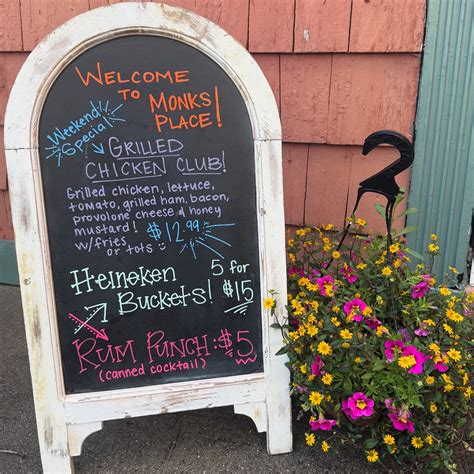 WELCOME TO
MONKS
PLACE!
Weekend
Special!
GRILLED
CHICKEN CLUB!
Grilled chicken, lettuce,
tomato, grilled ham, bacon,
provolone cheese & honey
mustard!
w/fries
or tots $12.99
Heineken 5 for
Buckets! $15
RUM PUNCH: $5
(canned cocktail)